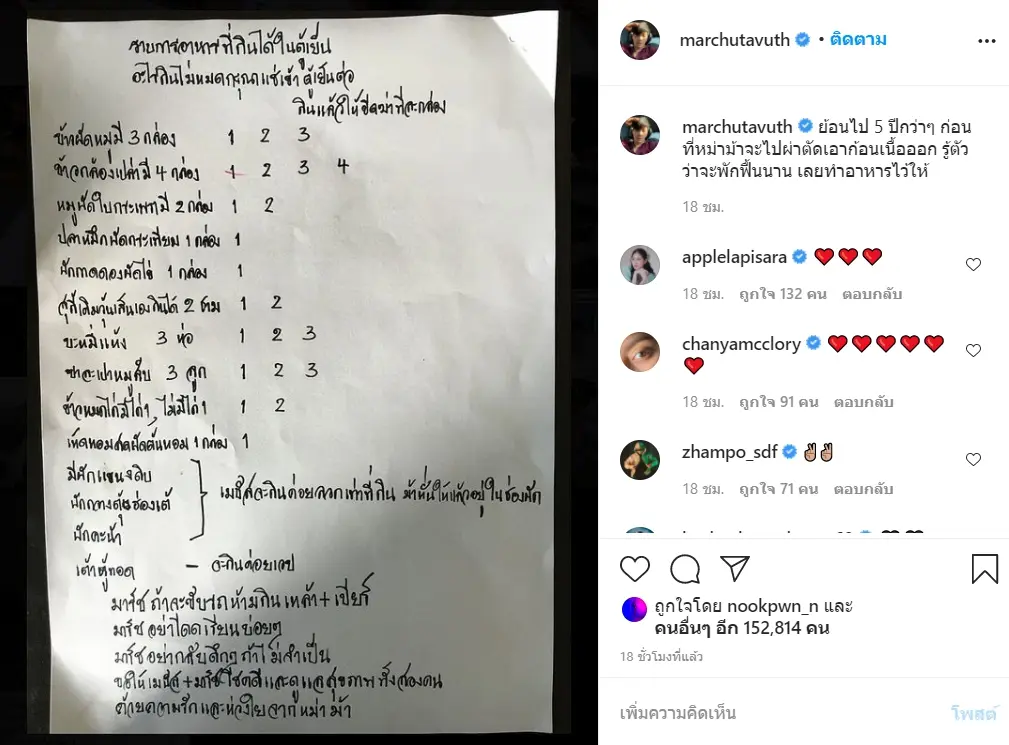 รายการอาหารที่กินได้ในตู้เย็น
อะไรกินไม่หมดกรุณาแช่เข้าตู้เย็นต่อ
กินแล้วให้ขีดฆ่าทีละกล่อง
ข้าวผัดหมูมี 3 กล่อง 1 2 3
ข้าวกล้องเปล่ามี 4 กล่อง 1 2 3 4
หมูผัดใบกระเพรามี 2 กล่อง 1 2
ปลาหมึกผัดกระเทียม 1 กล่อง 1
ผักกาดดองผัดไข่ 1 กล่อง 1
สุกี้เติมวุ้นเส้นเองกินได้ 2 ชาม 1 2
บะหมี่แห้ง 3 ห่อ 1 2 3
ซาละเปาหมูสับ 3 ลูก 1 2 3
ข้าวหมกไก่มีไก่ 1, ไม่มีไก่ 1 1 2
เห็ดหอมสดผัดต้นหอม 1 กล่อง 1
มีผักแขนงดิบ
ผักกวางตุ้งฮ่องเต้
ผักคะน้า
เมธัสจะกินค่อยลวกเท่าที่กิน ม้าหั่นให้แล้วอยู่ในช่องผัก
เต้าหู้ทอด – จะกินค่อยเวป
มาร์ช ถ้าจะขับรถห้ามกินเหล้า + เบียร์
มาร์ช อย่าโดดเรียนบ่อยๆ
มาร์ชอย่ากลับดึกๆ ถ้าไม่จำเป็น
ขอให้เมธัส + มาร์ชโชคดีและดูแลสุขภาพทั้งสองคน
ด้วยความรักและห่วงใยจากหม่าม้า
marchutavuth • ติดตาม
marchutavuth ย้อนไป 5 ปีกว่าๆ ก่อน
ที่หม่าม้าจะไปผ่าตัดเอาก้อนเนื้อออก รู้ตัว
ว่าจะพักฟื้นนาน เลยทำอาหารไว้ให้
18 ชม.
applelapisara
18 ชม. ถูกใจ 132 คน ตอบกลับ
chanyamcclory
18 ชม. ถูกใจ 91 คน ตอบกลับ
zhampo_sdf
18 ชม. ถูกใจ 71 คน ตอบกลับ
ถูกใจโดย nookpwn_n และ
คนอื่นๆ อีก 152,814 คน
18 ชั่วโมงที่แล้ว
เพิ่มความคิดเห็น
โพสต์